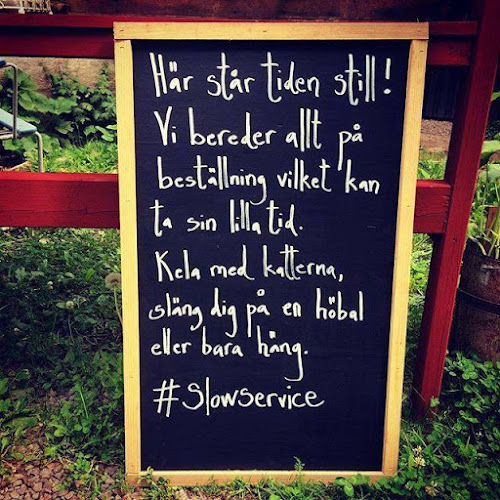 Här står tiden still!
Vi bereder allt på
beställning vilket kan
ta sin lilla tid.
Kela med katterna,
släng dig på en höbal
eller bara häng.
#Slowservice